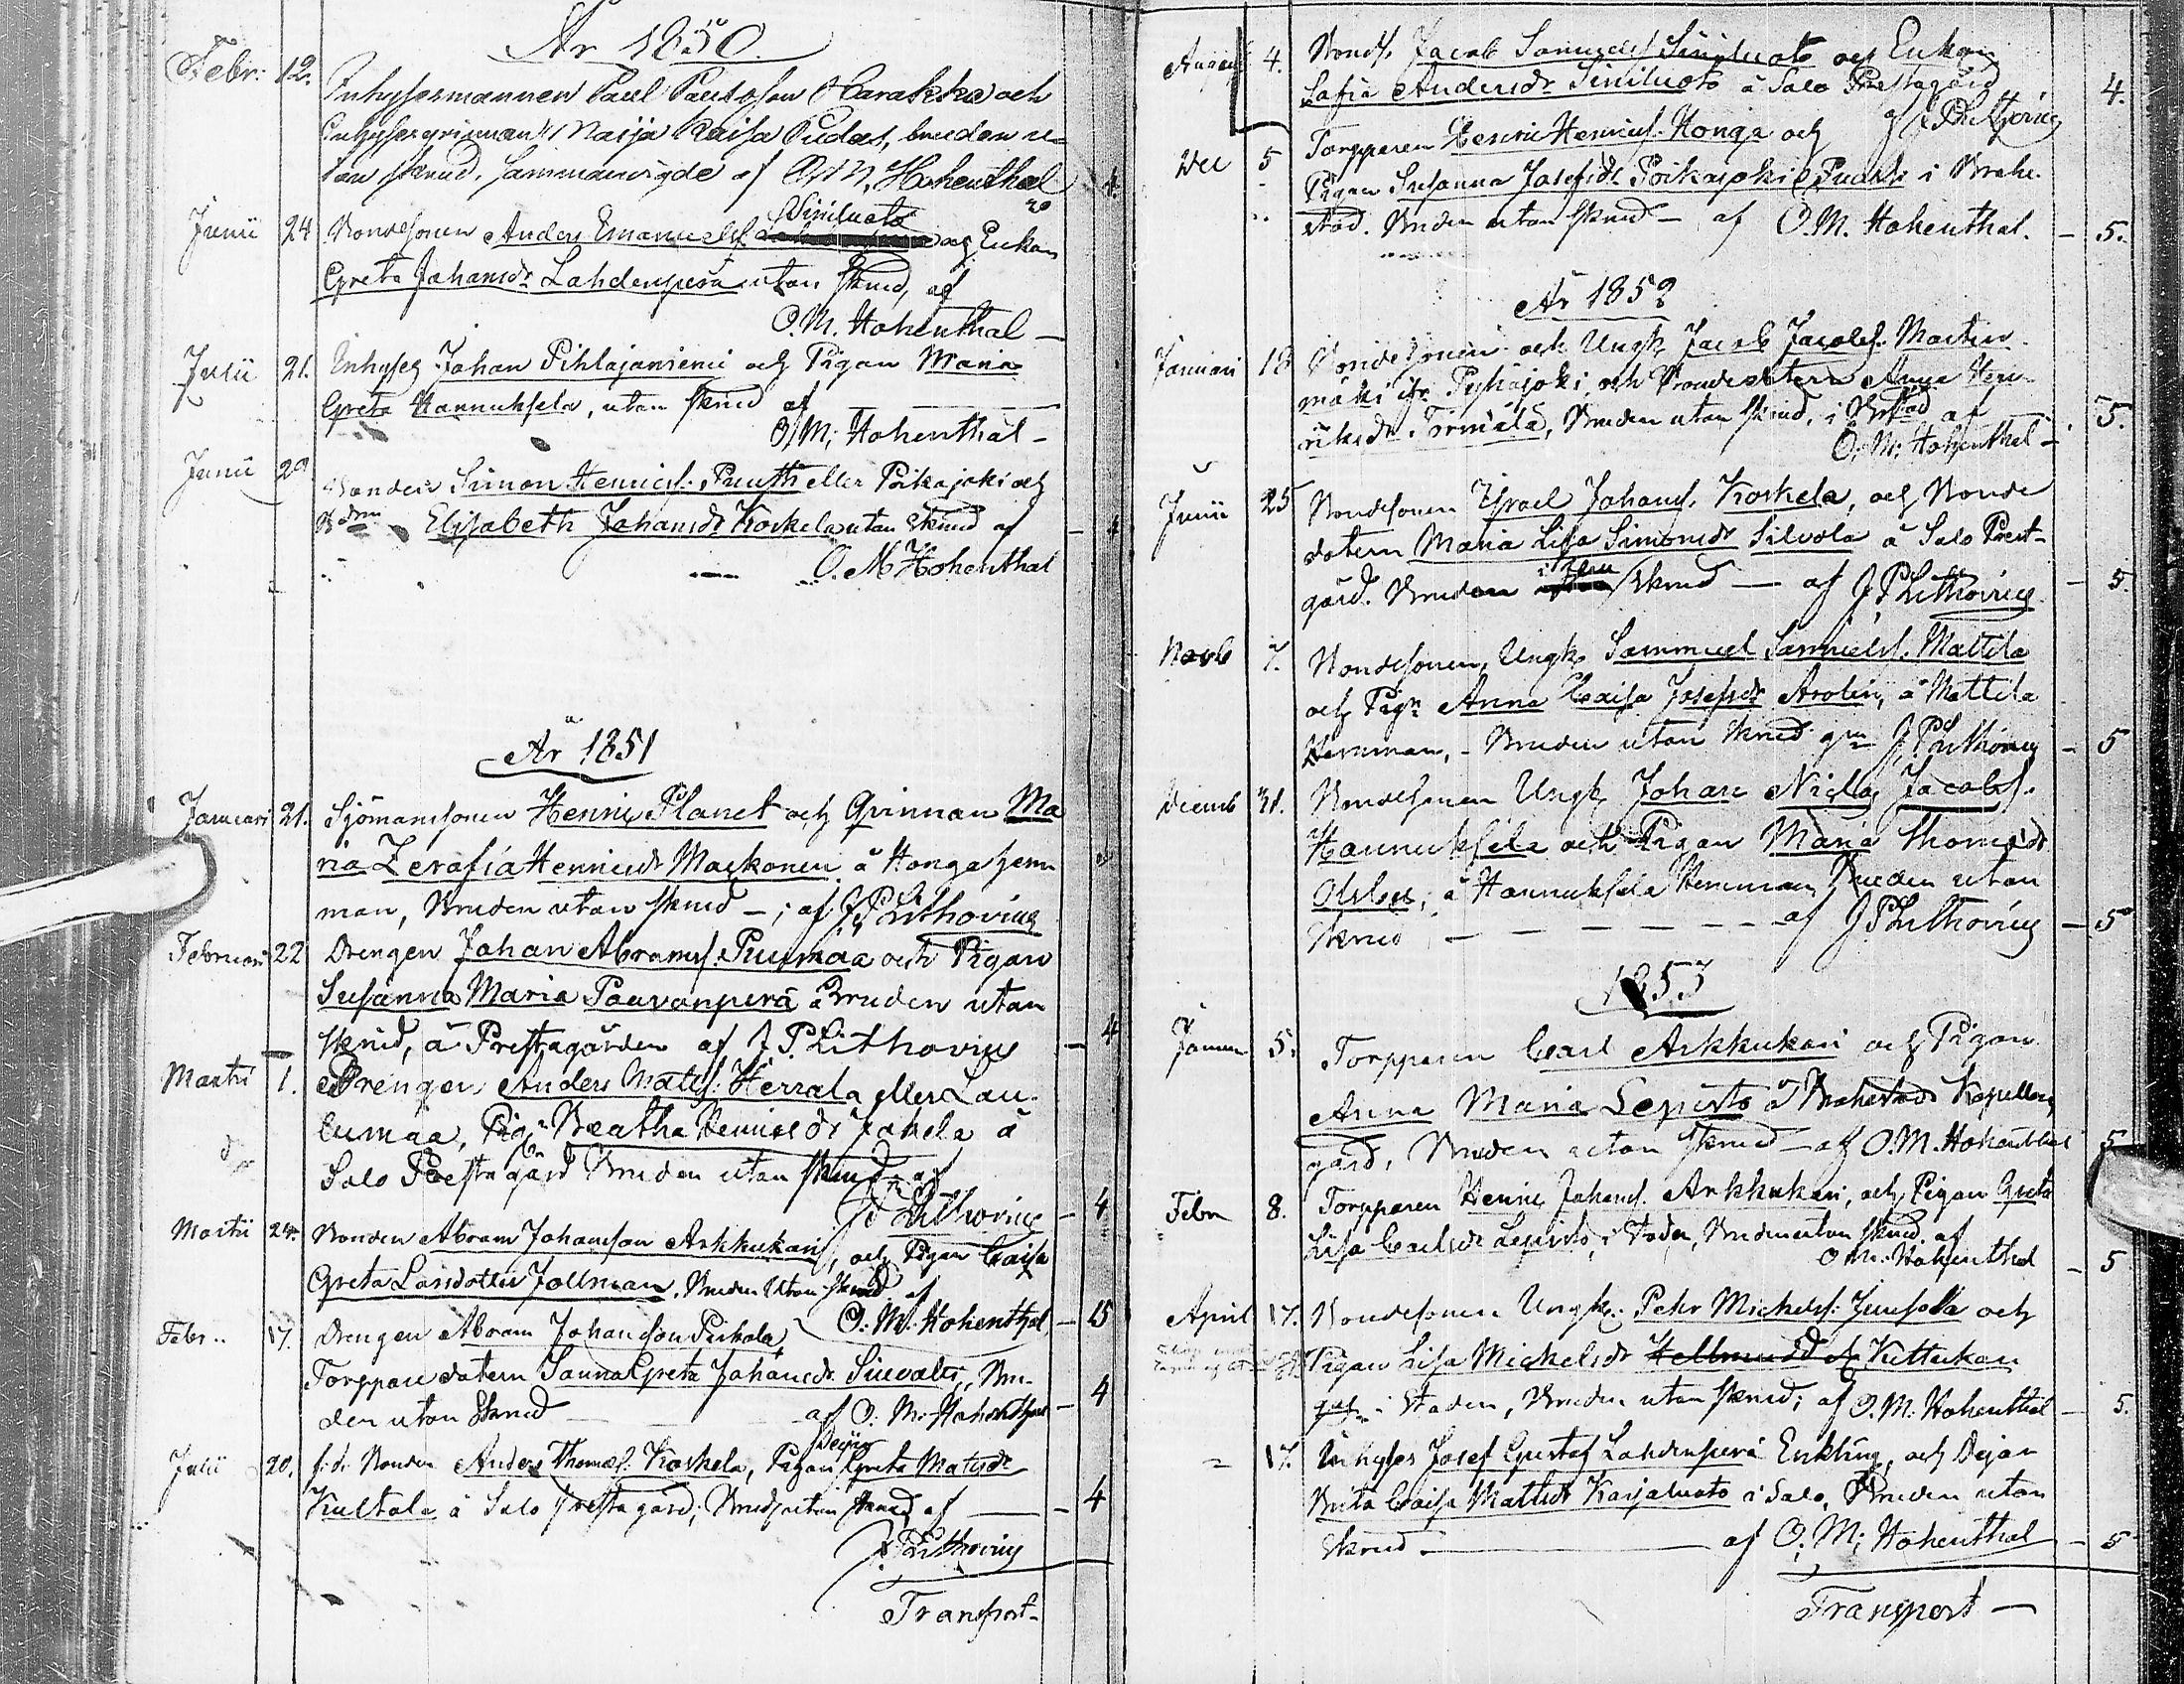 År 1850.
Febr: 12. Inhysesmannen Paul Paulsson Harakka och
Inhysesqvinnan Maija Kaisa Pudas, bruden u-
tan skrud, sammanvigde af O. M. Hohenthal 4.
Junii 24 Bondesonen Anders Emanuelss. Siniluoto och Enkan
Greta Johansdr Lahdenperä utan skrud, af
O. M. Hohenthal —
Julii 21. Inhyses Johan Pihlajaniemi och Pigan Maria
Greta Hannuksela, utan skrud af
O. M. Hohenthal —
Junii 29 Bonden Simon Henricss. Puuth eller Poikajoki och
Elisabeth Johansdr Koskela utan skrud af — 4
O. M. Hohenthal
År 1851
Januari 21. Sjömanssonen Henric Planet och Qvinnan Ma
ria Zerafia Henricsdr Markonen å Honga hem
man, Bruden utan skrud —; af J. P. Lithovius
Februari 22 Drengen Johan Abramss. Ruumaa och Pigan
Susanna Maria Paavonperä Bruden utan
skrud, å Prestagården af J. P. Lithovius — 4
Martii 1. Drengen Anders Matss. Herrala eller Lau-
lumaa, Pign Beatha Henricsdr Jakela å
Salo Prestagård Bruden utan skrud af
J P Lithovius — 4
Martii 24. Bonden Abram Johansson Arkkukari, och Pigan Caisa
Greta Larsdotter Jollman, Bruden Utan skrud af
O. M. Hohenthal — 5
Febr.. 17. Drengen Abram Johansson Pirkola,
Torppare dotern Sanna Greta Johansdr. Siuvala, Bru-
den utan Skrud — af O. M. Hohenthal — 4
Julii 20. f.d. Bonden Anders Thomass. Koskela, Pigan Greta Matsdr
Kultala å Salo Prestagård; Brud. utan skrud af — 4
J. P. Lithovius
Transport —
August 4. Bonds. Jacob Samuelss Siniluoto och Enkan
Safia Andersdr Siniluoto å Salo Prestagård 4.
J P Lithovius
Dec 5 Torpparen Henric Henricss. Honga och
Pigan Susanna Josefsdr. Poikajoki Puuth i Brahe-
stad. Bruden utan skrud — af O. M. Hohenthal. — 5.
År 1852
Januari 18 Bondesonen och Ungk. Jacob Jacobss. Martin
mäki ifr. Pyhäjoki, och Bondedotern Anna Hen-
riksdr Törmälä, Bruden utan skrud, i Brstad af 5.
O. M. Hohenthal —
Junii 25 Bondesonen Israel Johanss. Koskela, och Bonde
dotern Maria Lisa Simonsdr Silvola å Salo Prest-
gård. Bruden i skrud — af J P Lithovius — 5
Novb 7. Bondesonen, Ungk. Sammuel Samuelss. Mattila
och Pign Anna Caisa Josefsdr Arolin, å Mattila
Hemman, - Bruden utan skrud gm J. P. Lithovius — 5
Decemb 31. Bondesonen Ungk. Johan Niclas Jacobss.
Hannuksela och Pigan Maria Thomasdr
å Hannuksela Hemman Bruden utan
skrud — — — — — — af J P Lithovius — 5
1853
Januar 5. Torpparen Carl Arkkukari och Pigan
Anna Maria Lepistö å Brahestads Kapellans
gård, Bruden utan Skrud — af O. M. Hohenthal 5
Febr 8. Torpparen Henric Johanss. Arkkukari, och Pigan Greta
Lisa Carlsdr Lepistö, i Staden, Bruden utan skrud. af
O. M. Hohenthal — 5
April 17. Bondesonen Ungk. Pehr Mickelss. Junsola och
Pigan Lisa Mickelsdr Kuttukari
i Staden, Bruden utan skrud; af O. M. Hohenthal — 5.
" 17. Inhyses Josef Gustaf Lahdenperä Enkling, och Dejan
Brita Caisa Mattsdr Karjaluoto i Salo, Bruden utan
skrud — af O. M. Hohenthal — 5
Transport —